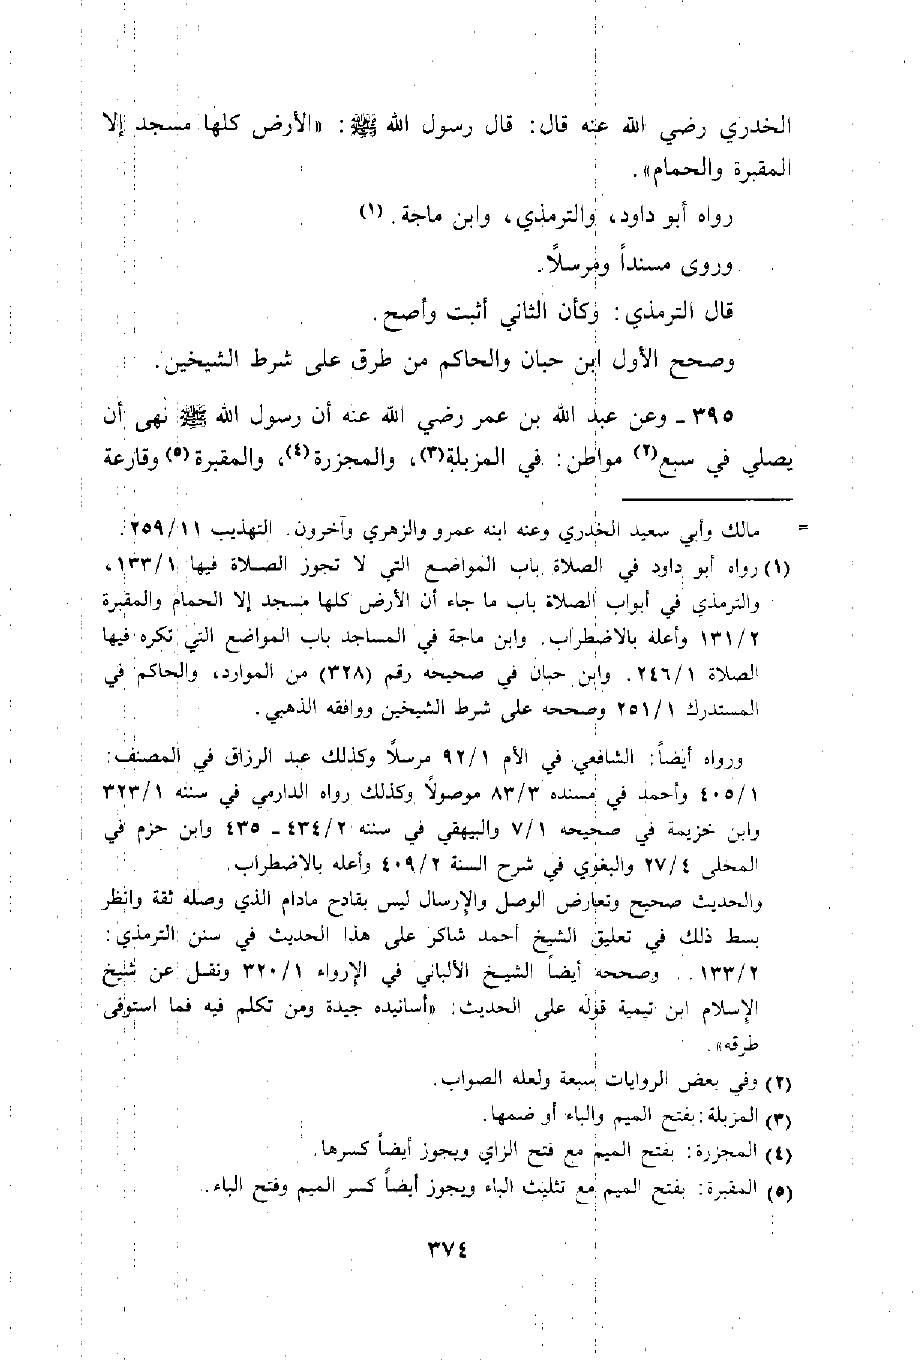 الخدري رضي الله عنه قال: قال رسول الله ﷺ: «الأرض كلها مسجد إلا
المقبرة والحمام».
رواه أبو داود، والترمذي، وابن ماجة. (١)
وروى مسنداً ومرسلاً.
قال الترمذي: وكأن الثاني أثبت وأصح.
وصحح الأول ابن حبان والحاكم من طرق على شرط الشيخين.
٣٩٥ ـ وعن عبد الله بن عمر رضي الله عنه أن رسول الله ﷺ نهى أن
يصلي في سبع(٢) مواطن: في المزبلة(٣)، والمجزرة(٤)، والمقبرة(٥) وقارعة
= مالك وأبي سعيد الخدري وعنه ابنه عمرو والزهري وآخرون. التهذيب ٢٥٩/١١.
(١) رواه أبو داود في الصلاة باب المواضع التي لا تجوز الصلاة فيها ١٣٣/١،
والترمذي في أبواب الصلاة باب ما جاء أن الأرض كلها مسجد إلا الحمام والمقبرة
١٣١/٢ وأعله بالاضطراب. وابن ماجة في المساجد باب المواضع التي تكره فيها
الصلاة ٢٤٦/١. وابن حبان في صحيحه رقم (٣٢٨) من الموارد، والحاكم في
المستدرك ٢٥١/١ وصححه على شرط الشيخين ووافقه الذهبي.
ورواه أيضاً: الشافعي في الأم ٩٢/١ مرسلاً وكذلك عبد الرزاق في المصنف:
٤٠٥/١ وأحمد في مسنده ٨٣/٣ موصولاً وكذلك رواه الدارمي في سننه ٣٢٣/١
وابن خزيمة في صحيحه ٧/١ والبيهقي في سننه ٤٣٤/٢ ـ ٤٣٥ وابن حزم في
المحلى ٢٧/٤ والبغوي في شرح السنة ٤٠٩/٢ وأعله بالاضطراب.
والحديث صحيح وتعارض الوصل والإرسال ليس بقادح مادام الذي وصله ثقة وانظر
بسط ذلك في تعليق الشيخ أحمد شاكر على هذا الحديث في سنن الترمذي:
١٣٣/٢.. وصححه أيضاً الشيخ الألباني في الإرواء ٣٢٠/١ ونقل عن شيخ
الإسلام ابن تيمية قوله على الحديث: «أسانيده جيدة ومن تكلم فيه فما استوفى
طرقه».
(٢) وفي بعض الروايات سبعة ولعله الصواب.
(٣) المزبلة: بفتح الميم والباء أو ضمها.
(٤) المجزرة: بفتح الميم مع فتح الزاي ويجوز أيضاً كسرها.
(٥) المقبرة: بفتح الميم مع تثليث الباء ويجوز أيضاً كسر الميم وفتح الباء.
٣٧٤